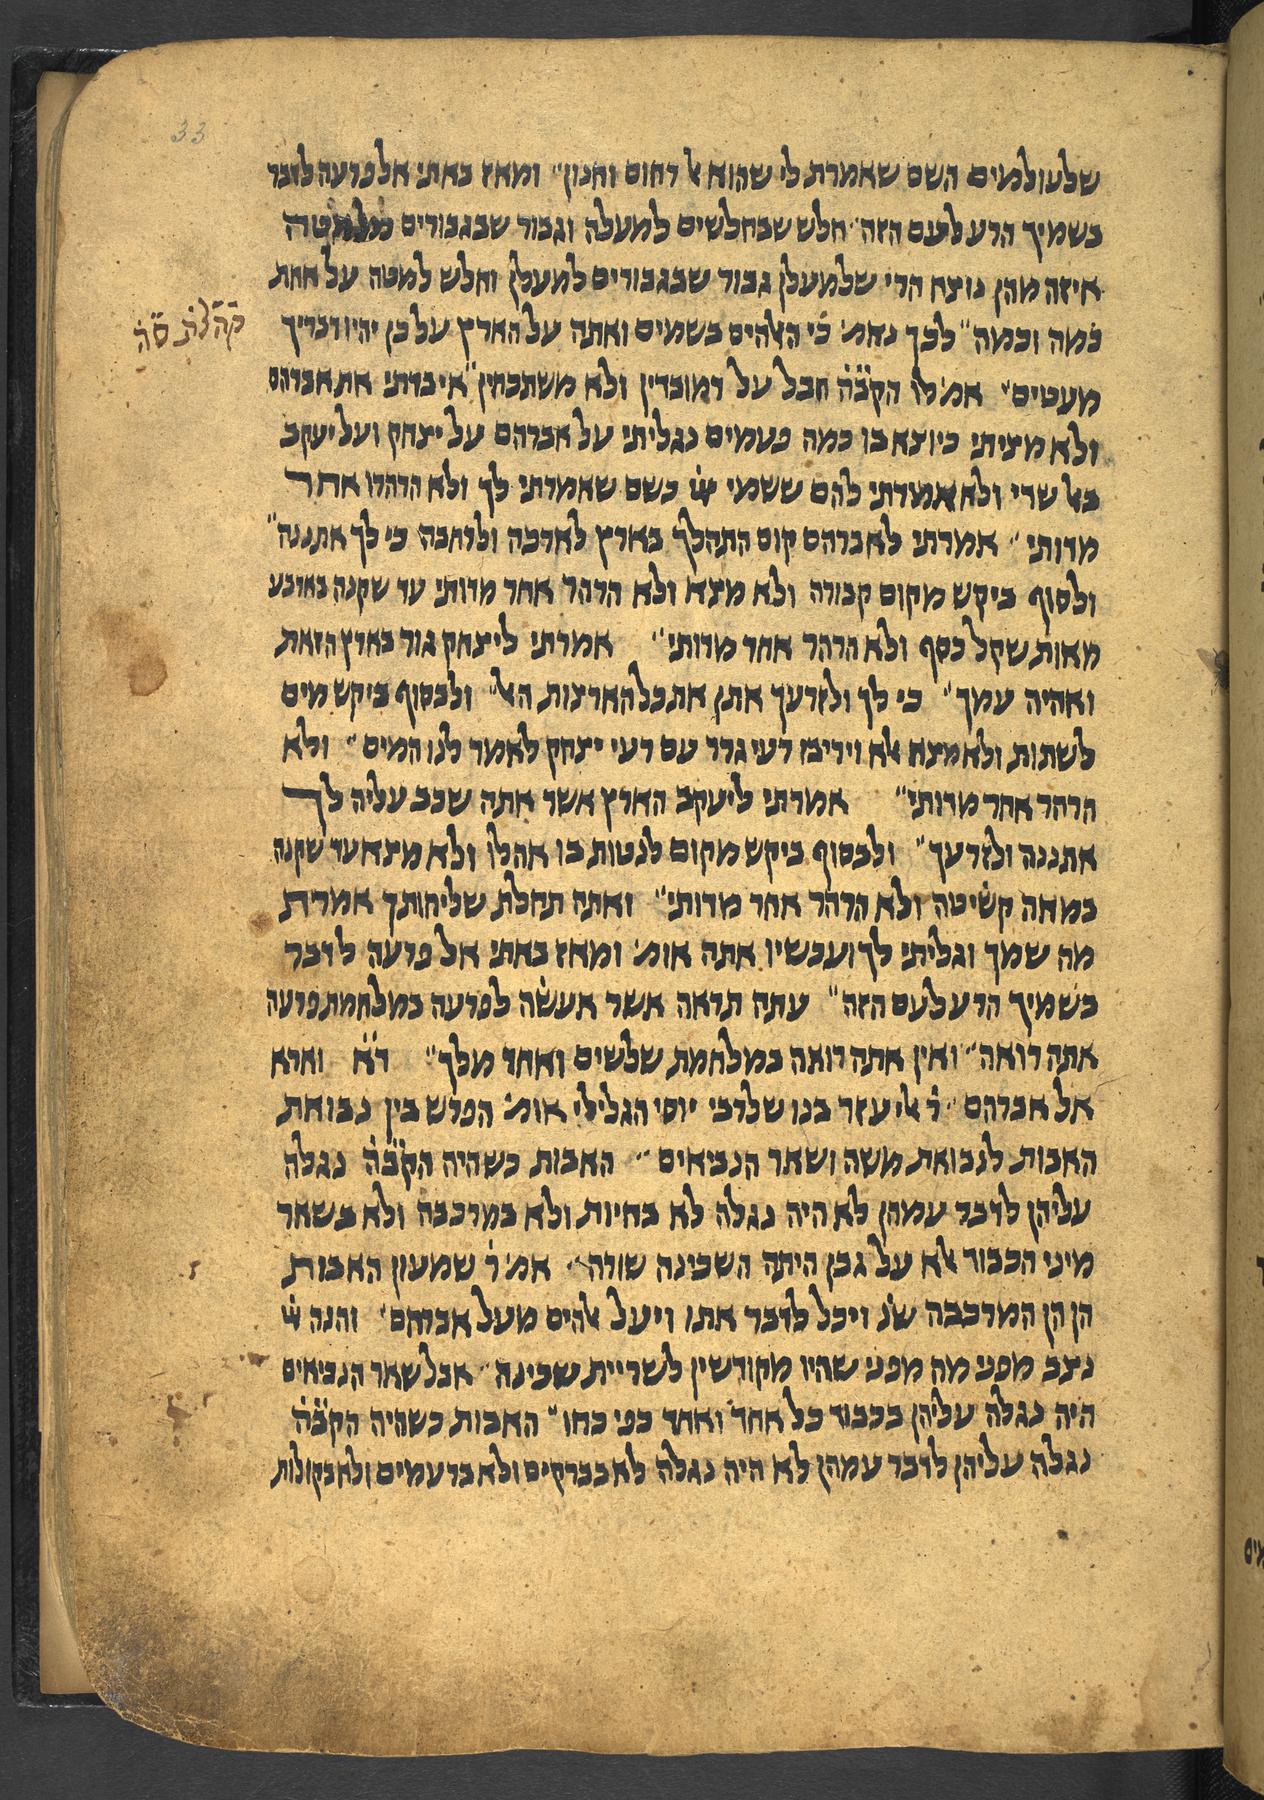 33
שלעולמים השם שאמרת לי שהוא אל רחום וחנון״ ומאז באתי אל פרעה לדבר
בשמיך הרע לעם הזה״ חלש שבחלשים למעלה וגבור שבגבורים למטה
איזה מהן נוצח הרי שלמעלן גבור שבגבורים למעלן וחלש למטה על אחת
כמה וכמה״ לכך נאמ׳ כי האלהים בשמים ואתה על הארץ על כן יהיו דבריך
קהלת ה
מעטים״ אמ׳ לו הקב̇ה חבל על דמובדין ולא משתכחין״ איבדתי את אברהם
ולא מציתי כיוצא בו כמה פעמים נגליתי על אברהם על יצחק ועל יעקב
באל שדי ולא אמרתי להם ששמי כשם שאמרתי לך ולא הרהרו אחר
מדותי״ אמרתי לאברהם קום התהלך בארץ לארכה ולרחבה כי לך אתננה״
ולסוף ביקש מקום קבורה ולא מצא ולא הרהר אחר מדותי עד שקנה בארבע
מאות שקל כסף ולא הרהר אחר מדותי״ אמרתי ליצחק גור בארץ הזאת
ואהיה עמך״ כי לך ולזרעך אתן את כל הארצות האל״ ולבסוף ביקש מים
לשתות ולא מצא אלא ויריבו רעי גרר עם רעי יצחק לאמר לנו המים״ ולא
הרהר אחר מדותי״ אמרתי ליעקב הארץ אשר אתה שכב עליה לך
אתננה ולזרעך״ ולבסוף ביקש מקום לנטות בו אהלו ולא מצא עד שקנה
במאה קשיטה ולא הרהר אחר מדותי״ ואתה תחלת שליחותך אמרת
מה שמך וגליתי לך ועכשיו אתה אומ׳ ומאז באתי אל פרעה לדבר
בשמיך הרע לעם הזה״ עתה תראה אשר אעשה לפרעה במלחמת פרעה
אתה רואה״ ואין אתה רואה במלחמת שלשים ואחד מלך״ ד̇א̇ וארא
אל אברהם״ ר̇ אליעזר בנו שלרבי יוסי הגלילי אומ׳ הפרש בין נבואת
האבות לנבואת משה ושאר הנביאים״ האבות כשהיה הקב̇ה נגלה
עליהן לדבר עמהן לא היה נגלה לא בחיות ולא במרכבה ולא בשאר
מיני הכבוד אלא על גבן היתה השכינה שורה״ אמ׳ ר̇ שמעון האבות
הן הן המרכבה שנ̇ ויכל לדבר אתו ויעל אלהים מעל אברהם״ והנה
נצב מפני מה מפני שהיו מקודשין לשריית שכינה״ אבל שאר הנביאים
היה נגלה עליהן בכבוד כל אחד ואחד כפי כחו״ האבות כשהיה הקב̇ה
נגלה עליהן לדבר עמהן לא היה נגלה לא בברקים ולא ברעמים ולא בקולות